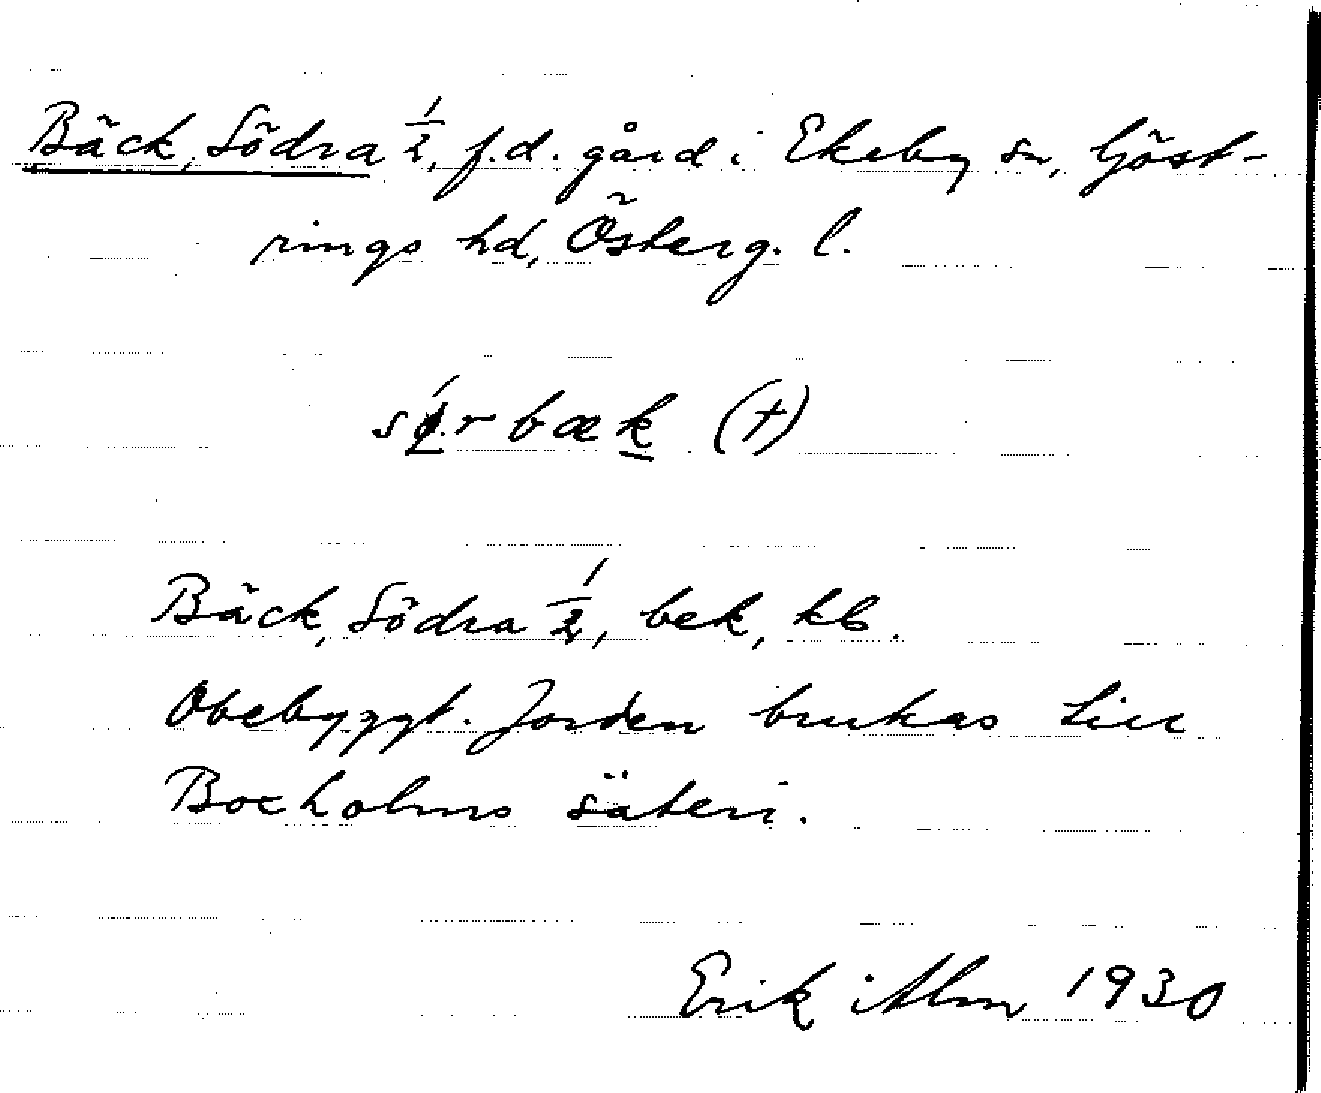 Bäck, Södra 1/2, f.d. gård i Ekeby sn, Göst-
rings hd, Österg. l.
sǿrbæk (+)
Bäck, Södra 1/2, bek, kb.
Obebyggt. Jorden brukas till
Boxholms säteri.
Erik Alm 1930